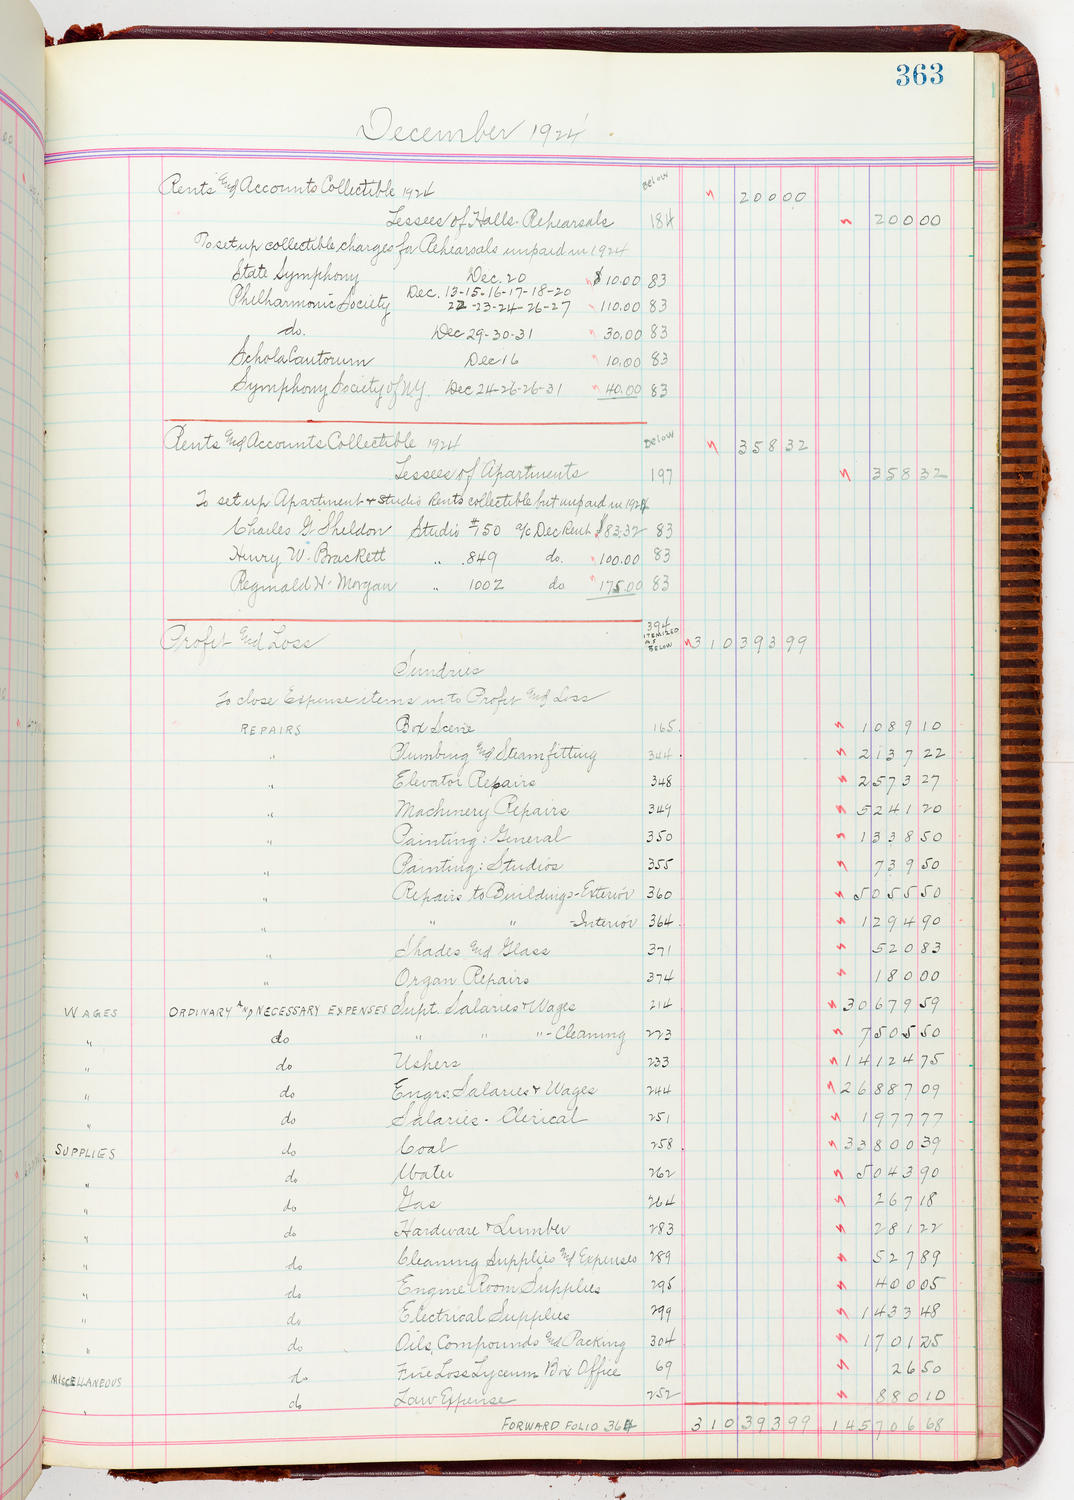 363
December 1924
Rents and Accounts Collectible 1924 Below 200 00
Lessees of Halls. Rehearsals 184 200 00
To set up collectible charges for Rehearsals unpaid in 1924
State Symphony Dec. 20 $10.00 83
Philharmonic Society Dec. 13-15-16-17-18-20
22-23-24-26-27 110.00 83
do. Dec 29-30-31 30.00 83
Schola Cantorum Dec 16 10.00 83
Symphony Society of N.Y. Dec 24-26-26-31 40.00 83
Rents and Accounts Collectible 1924 Below 358 32
Lessees of Apartments 197 358 32
To set up Apartment & Studio Rents collectible but unpaid in 1924
Charles G. Sheldon Studio #750 a/c Dec Rent $83.32 83
Henry W. Brackett " 849 do. 100.00 83
Reginald H. Morgan " 1002 do 175.00 83
Profit and Loss 394 ITEMIZED AS BELOW 310393 99
Sundries
To close Expense items into Profit and Loss
REPAIRS Box Scene 165. 1089 10
" Plumbing and Steamfitting 344. 2137 22
" Elevator Repairs 348 2573 27
" Machinery Repairs 349 5241 20
" Painting: General 350 1338 50
" Painting: Studios 355 739 50
" Repairs to Buildings-Exterior 360 5055 50
" " " -Interior 364. 1294 90
" Shades and Glass 371 520 83
" Organ Repairs 374 180 00
WAGES ORDINARY AND NECESSARY EXPENSES Supt. Salaries & Wages 214 30679 59
" do " " "-Cleaning 223 7505 50
" do Ushers 233 14124 75
" do Engrs. Salaries & Wages 244 26887 09
" do Salaries. Clerical 251 1977 77
SUPPLIES do Coal 258. 33800 39
" do Water 262 5043 90
" do Gas 264 267 18
" do Hardware & Lumber 283 281 22
" do Cleaning Supplies and Expenses 289 527 89
" do Engine Room Supplies 295 400 05
" do Electrical Supplies 299 1433 48
" do Oils, Compounds and Packing 304 1701 25
MISCELLANEOUS do Fire Loss Lyceum Box Office 69 26 50
" do Law Expense 252 880 10
FORWARD FOLIO 364 310393 99 145706 68